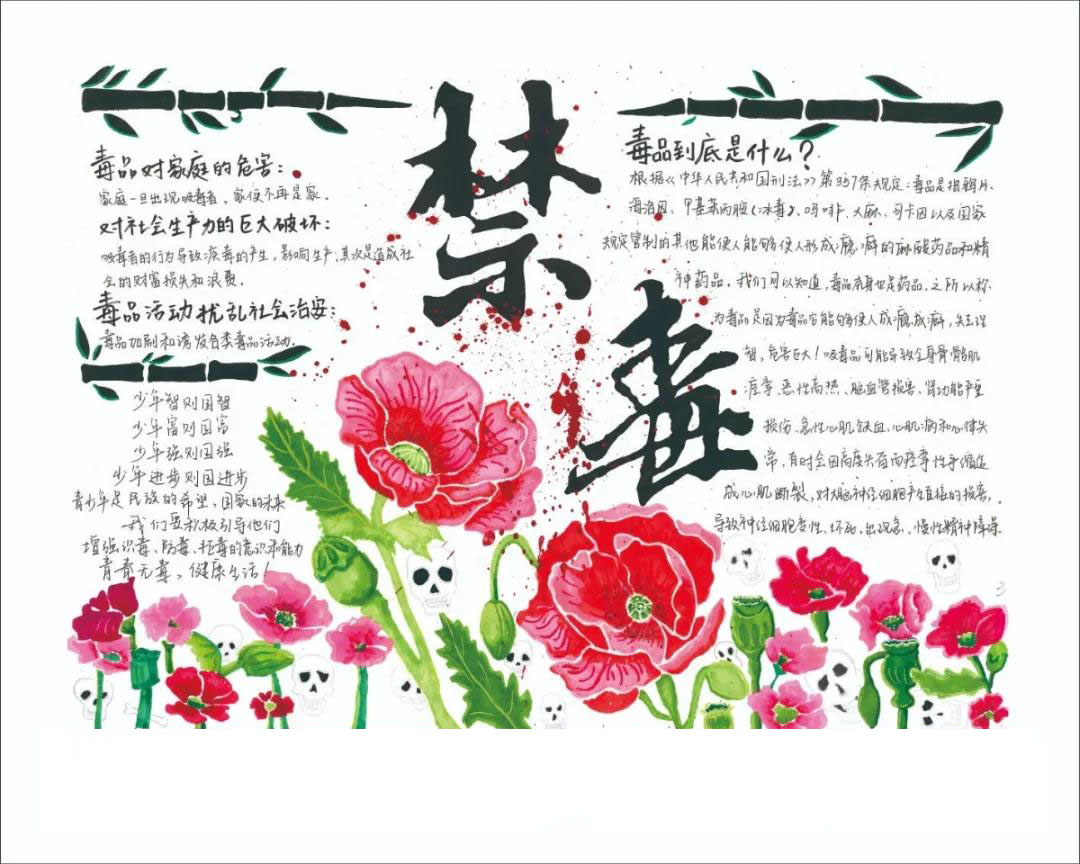 禁毒
毒品对家庭的危害：
家庭一旦出现吸毒者，家便不再是家。
对社会生产力的巨大破坏：
吸毒者的行为导致疾毒的产生，影响生产，其次是造成社
会的财富损失和浪费。
毒品活动扰乱社会治安：
毒品加剧和诱发各类毒品活动。
少年智则国智
少年富则国富
少年强则国强
少年进步则国进步
青少年是民族的希望，国家的未来
我们要积极引导他们
增强识毒、防毒、拒毒的意识和能力
青春无毒，健康生活！
毒品到底是什么？
根据《中华人民共和国刑法》第357条规定：毒品是指鸦片、
海洛因、甲基苯丙胺（冰毒）、吗啡、大麻、可卡因以及国家
规定管制的其他能使人能够使人形成瘾癖的麻醉药品和精
神药品。我们可以知道，毒品本身也是药品，之所以称
为毒品是因为毒品它能够使人成瘾成癖，失去理
智，危害巨大！吸毒品可能导致全身骨骼肌
痉挛、恶性高热、脑血管损害、肾功能严重
损伤、急性心肌缺血、心肌病和心律失
常，有时会因高度兴奋而痉挛性手
成心肌断裂，对大脑神经细胞产生直接的损害，
导致神经细胞变性、坏死，出现急、慢性精神障碍。